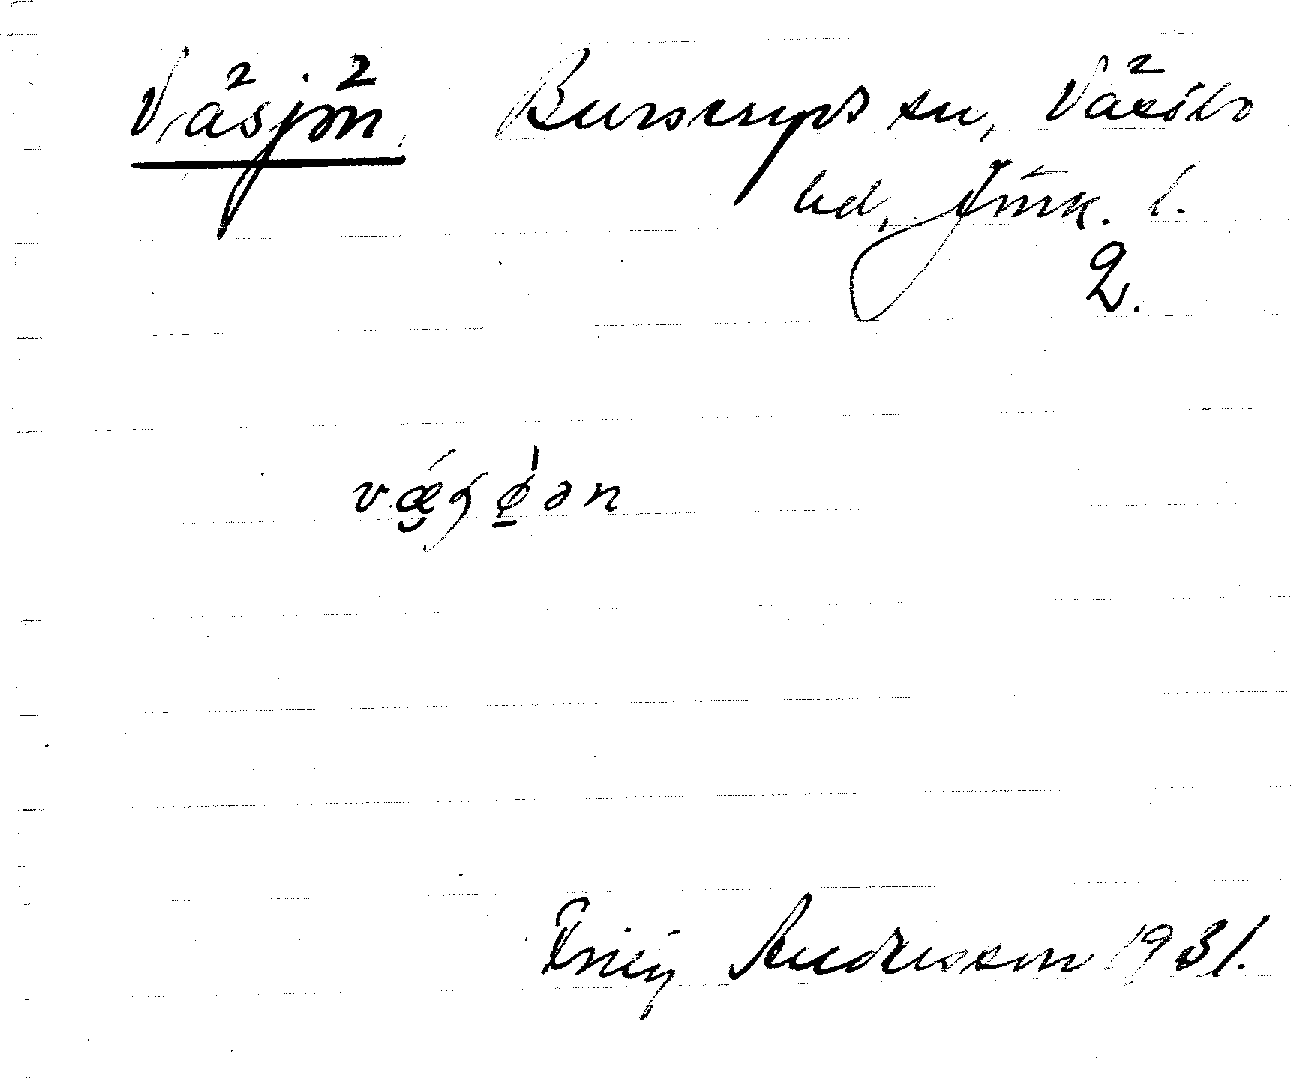 Väsjön, Burseryds sn, Västbo
hd, Jönk. l.
2.
vǽ̢ʂø̠̀ən
Frity Andersson 1931.